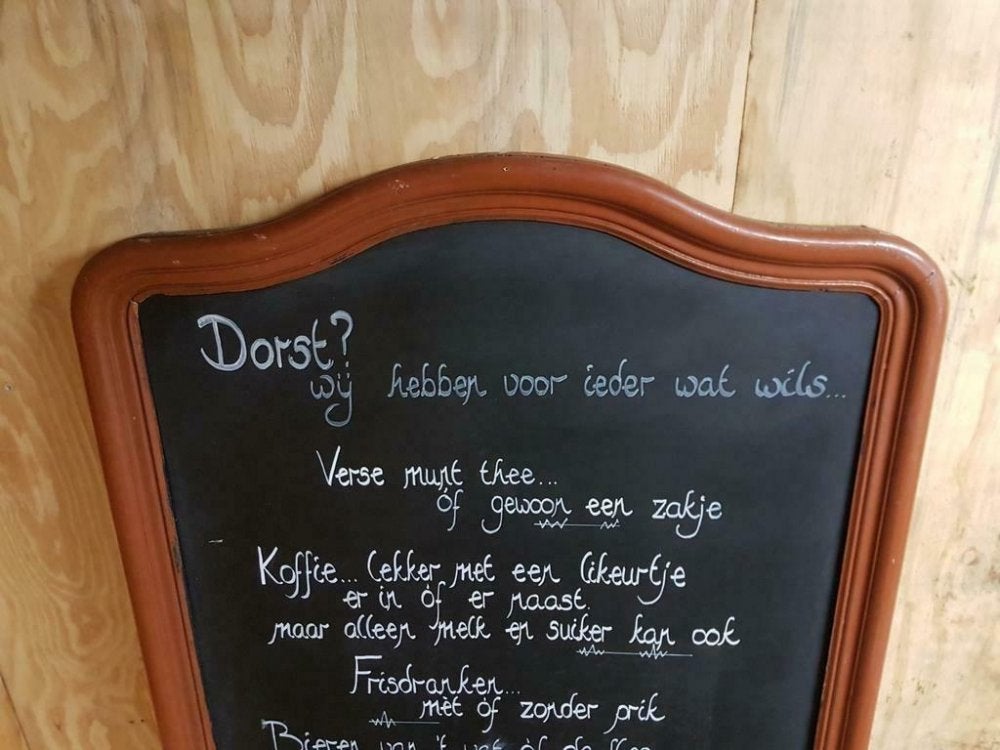 Dorst?
wij hebben voor ieder wat wils...
Verse munt thee...
óf gewoon een zakje
Koffie... lekker met een likeurtje
er in óf er naast.
maar alleen melk en suiker kan ook
Frisdranken...
mèt óf zonder prik
Bieren van 't vat óf de fles